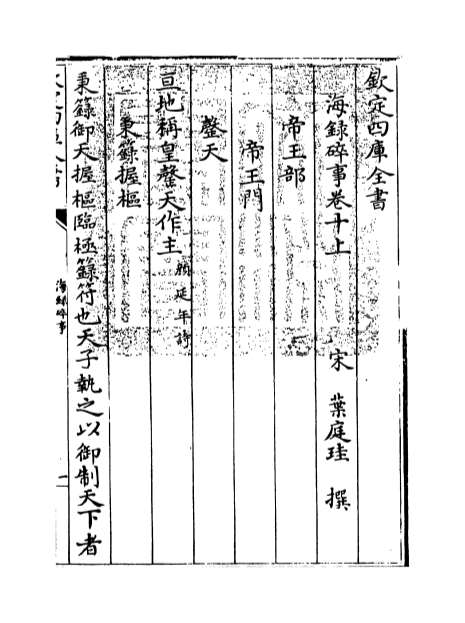 欽定四庫全書
海録碎事卷十上
宋 葉庭珪 撰
帝王部
帝王門
罄天
亘地稱皇罄天作主 顔延年詩
秉籙握樞
秉籙御天握樞臨極籙符也天子執之以御制天下者
海録碎事
一